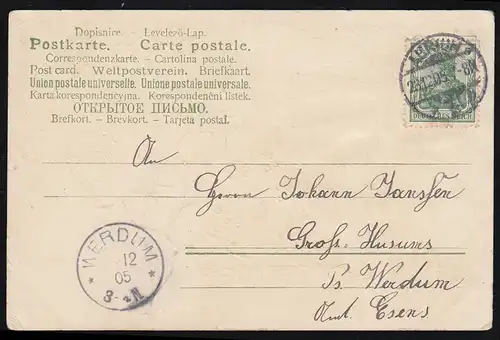 Dopisnice. – Levelezö-Lap.
Postkarte. – Carte postale.
Correspondenzkarte. – Cartolina postale.
Post card. – Weltpostverein. – Briefkaart.
Union postale universelle. – Unione postale universale.
Karta korespondencyjna. – Korespondenční lístek.
ОТКРЫТОЕ ПИСЬМО.
Brefkort. – Brevkort. – Tarjeta postal.
DEUTSCHES REICH
An
Herrn Johann Janssen
Groß. Husums
Ps. Werdum
Amt. Esens
WERDUM
12
05
3-4N